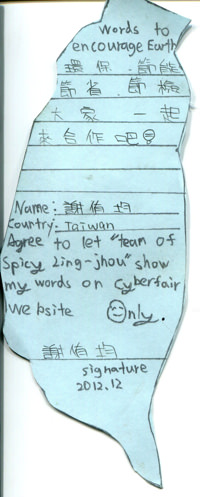 Words to
encourage Earth
環保 節能
節省 節樽
大家 一起
來合作吧
Name: 謝侑均
Country: Taiwan
Agree to let "team of
Spicy Ling-jhou" show
my words on Cyberfair
website Only.
謝侑均
signature
2012.12